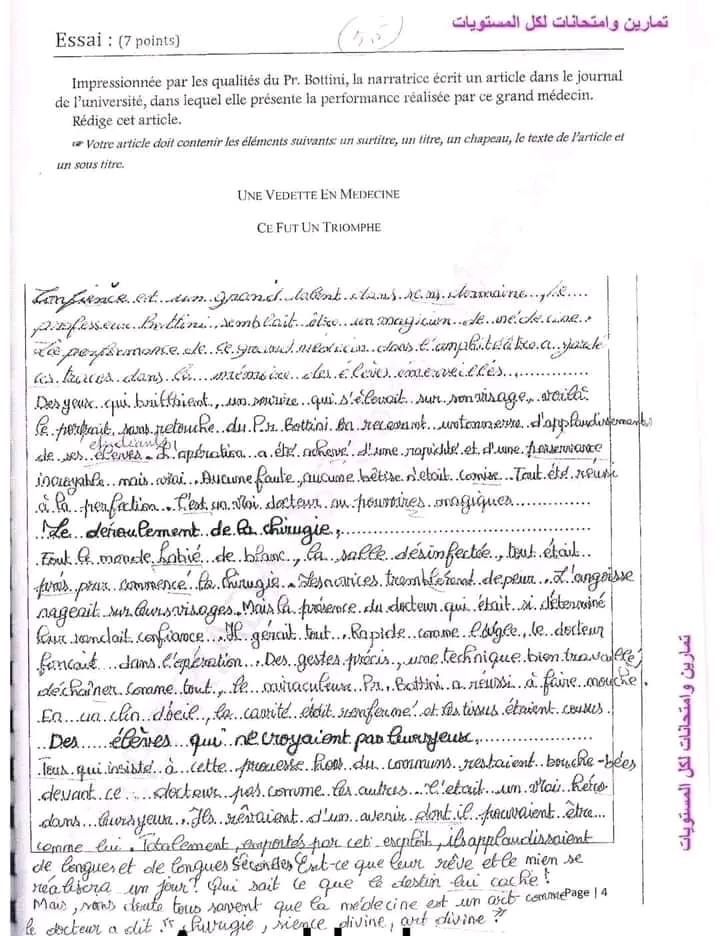 تمارين وامتحانات لكل المستويات
Essai : (7 points)
5,5
Impressionnée par les qualités du Pr. Bottini, la narratrice écrit un article dans le journal
de l'université, dans lequel elle présente la performance réalisée par ce grand médecin.
Rédige cet article.
☞ Votre article doit contenir les éléments suivants: un surtitre, un titre, un chapeau, le texte de l'article et
un sous titre.
UNE VEDETTE EN MEDECINE
CE FUT UN TRIOMPHE
et un grand talent dans domaine, le
professeur Bottini, semblait être un magicien de médecine.
La performance de ce grand médecin dans l'amphithéâtre a gardé
traces dans la mémoire des élèves émerveillés
Des yeux qui brillaient, un sourire qui s'élevait sur son visage, voilà
le portrait sans retouche du Pr. Bottini en recevant un tonnerre d'applaudissements
de ses élèves étudiants. L'opération a été achevé d'une rapidité et d'une
incroyable mais vrai. Aucune faute, aucune bêtise n'était comise. Tout été réussi
à la perfection. C'est un vrai docteur au pouvoires magiques
Le déroulement de la chirugie,
Tout le monde habié de blanc, la salle désinfectée, tout était
près pour commencé la chirugie. Les novices de peur. L'angoisse
nageait sur leurs visages. Mais la présence du docteur qui était si déterminé
leur confiance. Il gérait tout. Rapide comme, le docteur
dans l'opération. Des gestes précis, une technique bien travaillé,
déchaîner comme tout, le miraculeux Pr. Bottini a réussi à faire mouche.
En un clin d'œil, la cavité était renfermé et les tissus étaient cousus.
Des élèves qui ne croyaient pas leurs yeux,
Tous qui insisté à cette prouesse hors du communs restaient bouche-bées
devant ce docteur pas comme les autres. C'était un vrai héro
dans leurs yeux. Ils d'un avenir dont il pouvaient être
comme lui. Totalement, emportés par cet exploit, ils applaudissaient
de longues et de longues secondes Est-ce que leur rêve et le mien se
réalisera un jour? Qui sait ce que le destin lui cache!
Mais, sans doute tous savent que la médecine est un art comme
Page | 4
le docteur a dit " chirugie, sience divine, art divine"
تمارين وامتحانات لكل المستويات